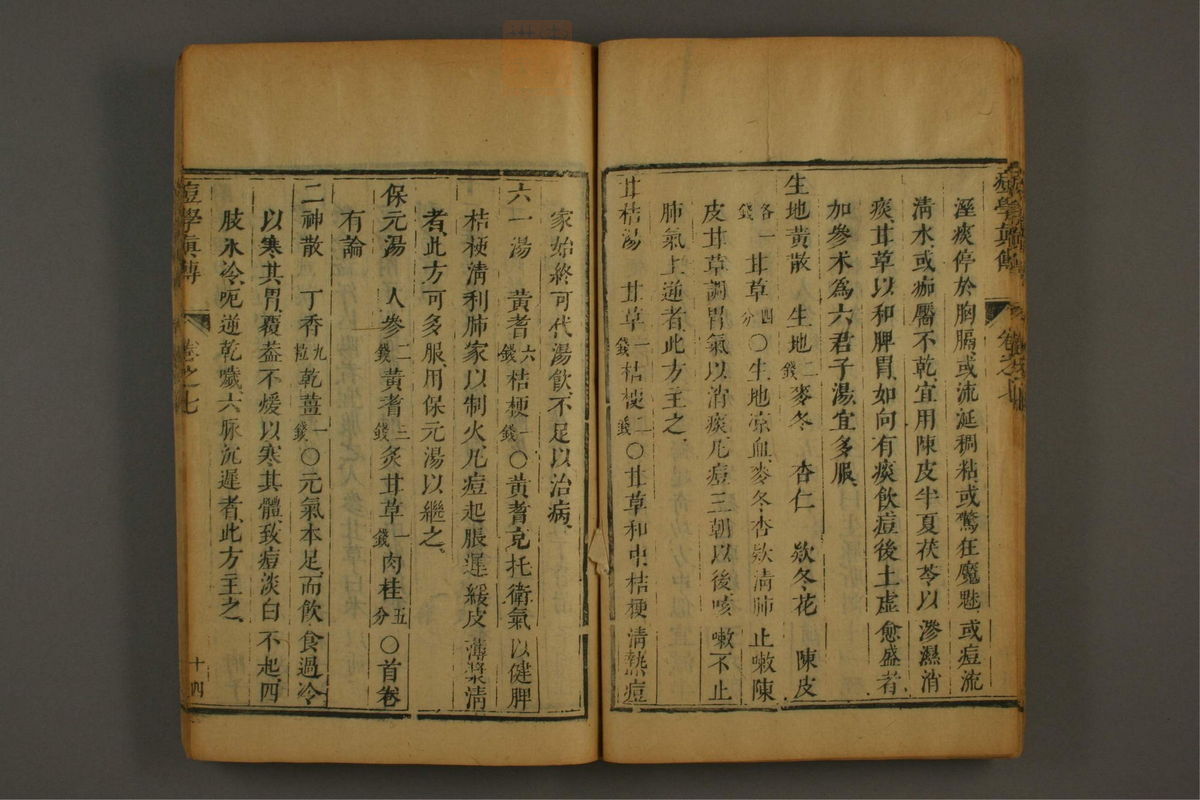 痘學眞傳 卷之七
溼痰停於胸膈或流涎稠粘或驚狂魔魅或痘流
淸水或痂靨不乾宜用陳皮半夏茯苓以滲濕消
痰甘草以和脾胃如向有痰飲痘後土虛愈盛者
加參朮爲六君子湯宜多服
生地黃散 人參 生地二錢 麥冬 杏仁 欵冬花 陳皮
各一錢 甘草四分 〇生地凉血麥冬杏欵淸肺止嗽陳
皮甘草調胃氣以消痰凡痘三朝以後咳嗽不止
肺氣上逆者此方主之
甘桔湯 甘草一錢 桔梗二錢 〇甘草和中桔梗淸熱痘
家始終可代湯飲不足以治病
六一湯 黃耆六錢 桔梗一錢 〇黃耆充托衛氣以健脾
桔梗淸利肺家以制火凡痘起脹遲緩皮薄漿淸
者此方可多服用保元湯以繼之
保元湯 人參二錢 黃耆三錢 炙甘草一錢 肉桂五分 〇首卷
有論
二神散 丁香九粒 乾薑一錢 〇元氣本足而飲食過冷
以寒其胃覆葢不煖以寒其體致痘淡白不起四
肢氷冷呃逆乾噦六脉沉遲者此方主之
痘學眞傳 卷之七 十四